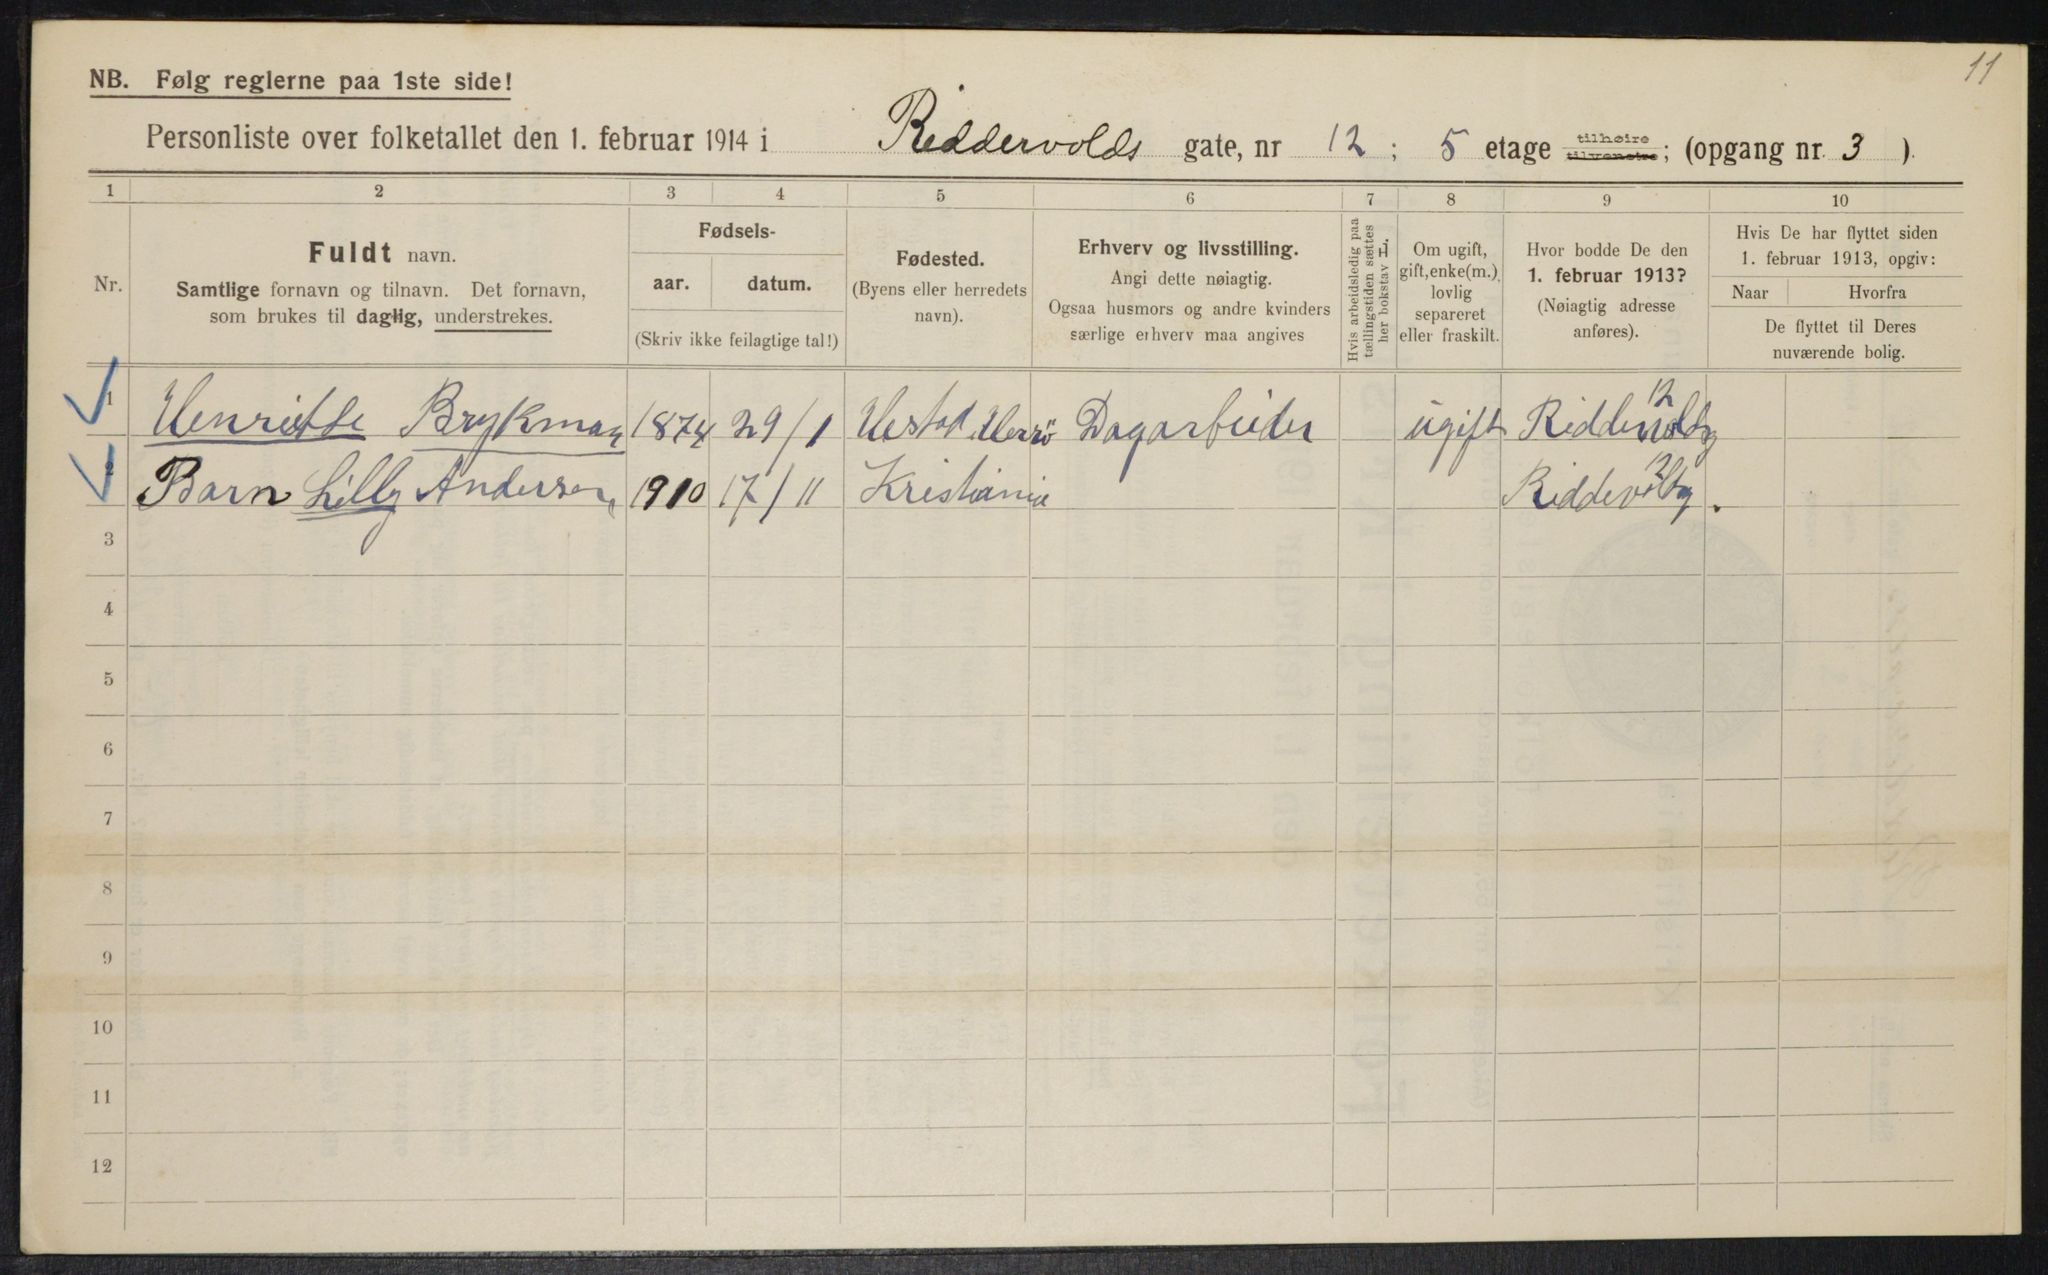 11
NB. Følg reglerne paa 1ste side!
Personliste over folketallet den 1. februar 1914 i Riddervolds gate, nr 12; 5 etage tilhøire tilvenstre; (opgang nr. 3).
1 2 3 4 5 6 7 8 9 10
Nr.
Fuldt navn.
Samtlige fornavn og tilnavn. Det fornavn,
som brukes til daglig, understrekes.
Fødsels-
aar. datum.
(Skriv ikke feilagtige tal!)
Fødested.
(Byens eller herredets
navn).
Erhverv og livsstilling.
Angi dette nøiagtig.
Ogsaa husmors og andre kvinders
særlige erhverv maa angives
Hvis arbeidsledig paa
tællingstiden sættes
her bokstav L.
Om ugift,
gift, enke(m.),
lovlig
separeret
eller fraskilt.
Hvor bodde De den
1. februar 1913?
(Nøiagtig adresse
anføres).
Hvis De har flyttet siden
1. februar 1913, opgiv:
Naar Hvorfra
De flyttet til Deres
nuværende bolig.
1 Henriette Brykman 1874 29/1 Dagarbeider ugift 12
2 Barn Lilly Andersen 1910 17/11 Kristiania 12
3
4
5
6
7
8
9
10
11
12